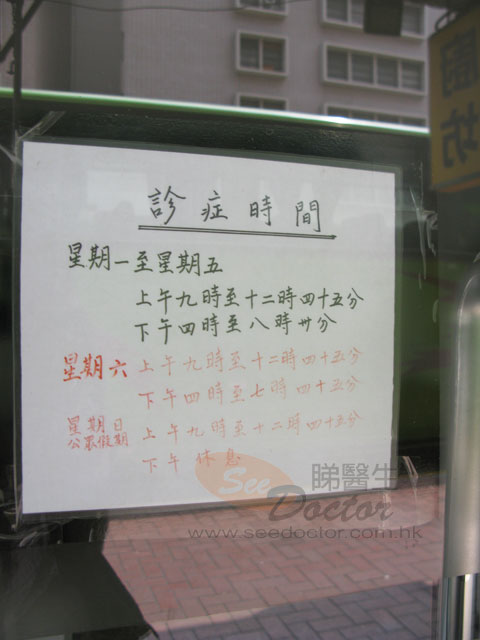 診症時間
星期一至星期五
上午九時至十二時四十五分
下午四時至八時卅分
星期六 上午九時至十二時四十五分
下午四時至七時四十五分
星期日
公眾假期 上午九時至十二時四十五分
下午休息
See Doctor 睇醫生
www.seedoctor.com.hk